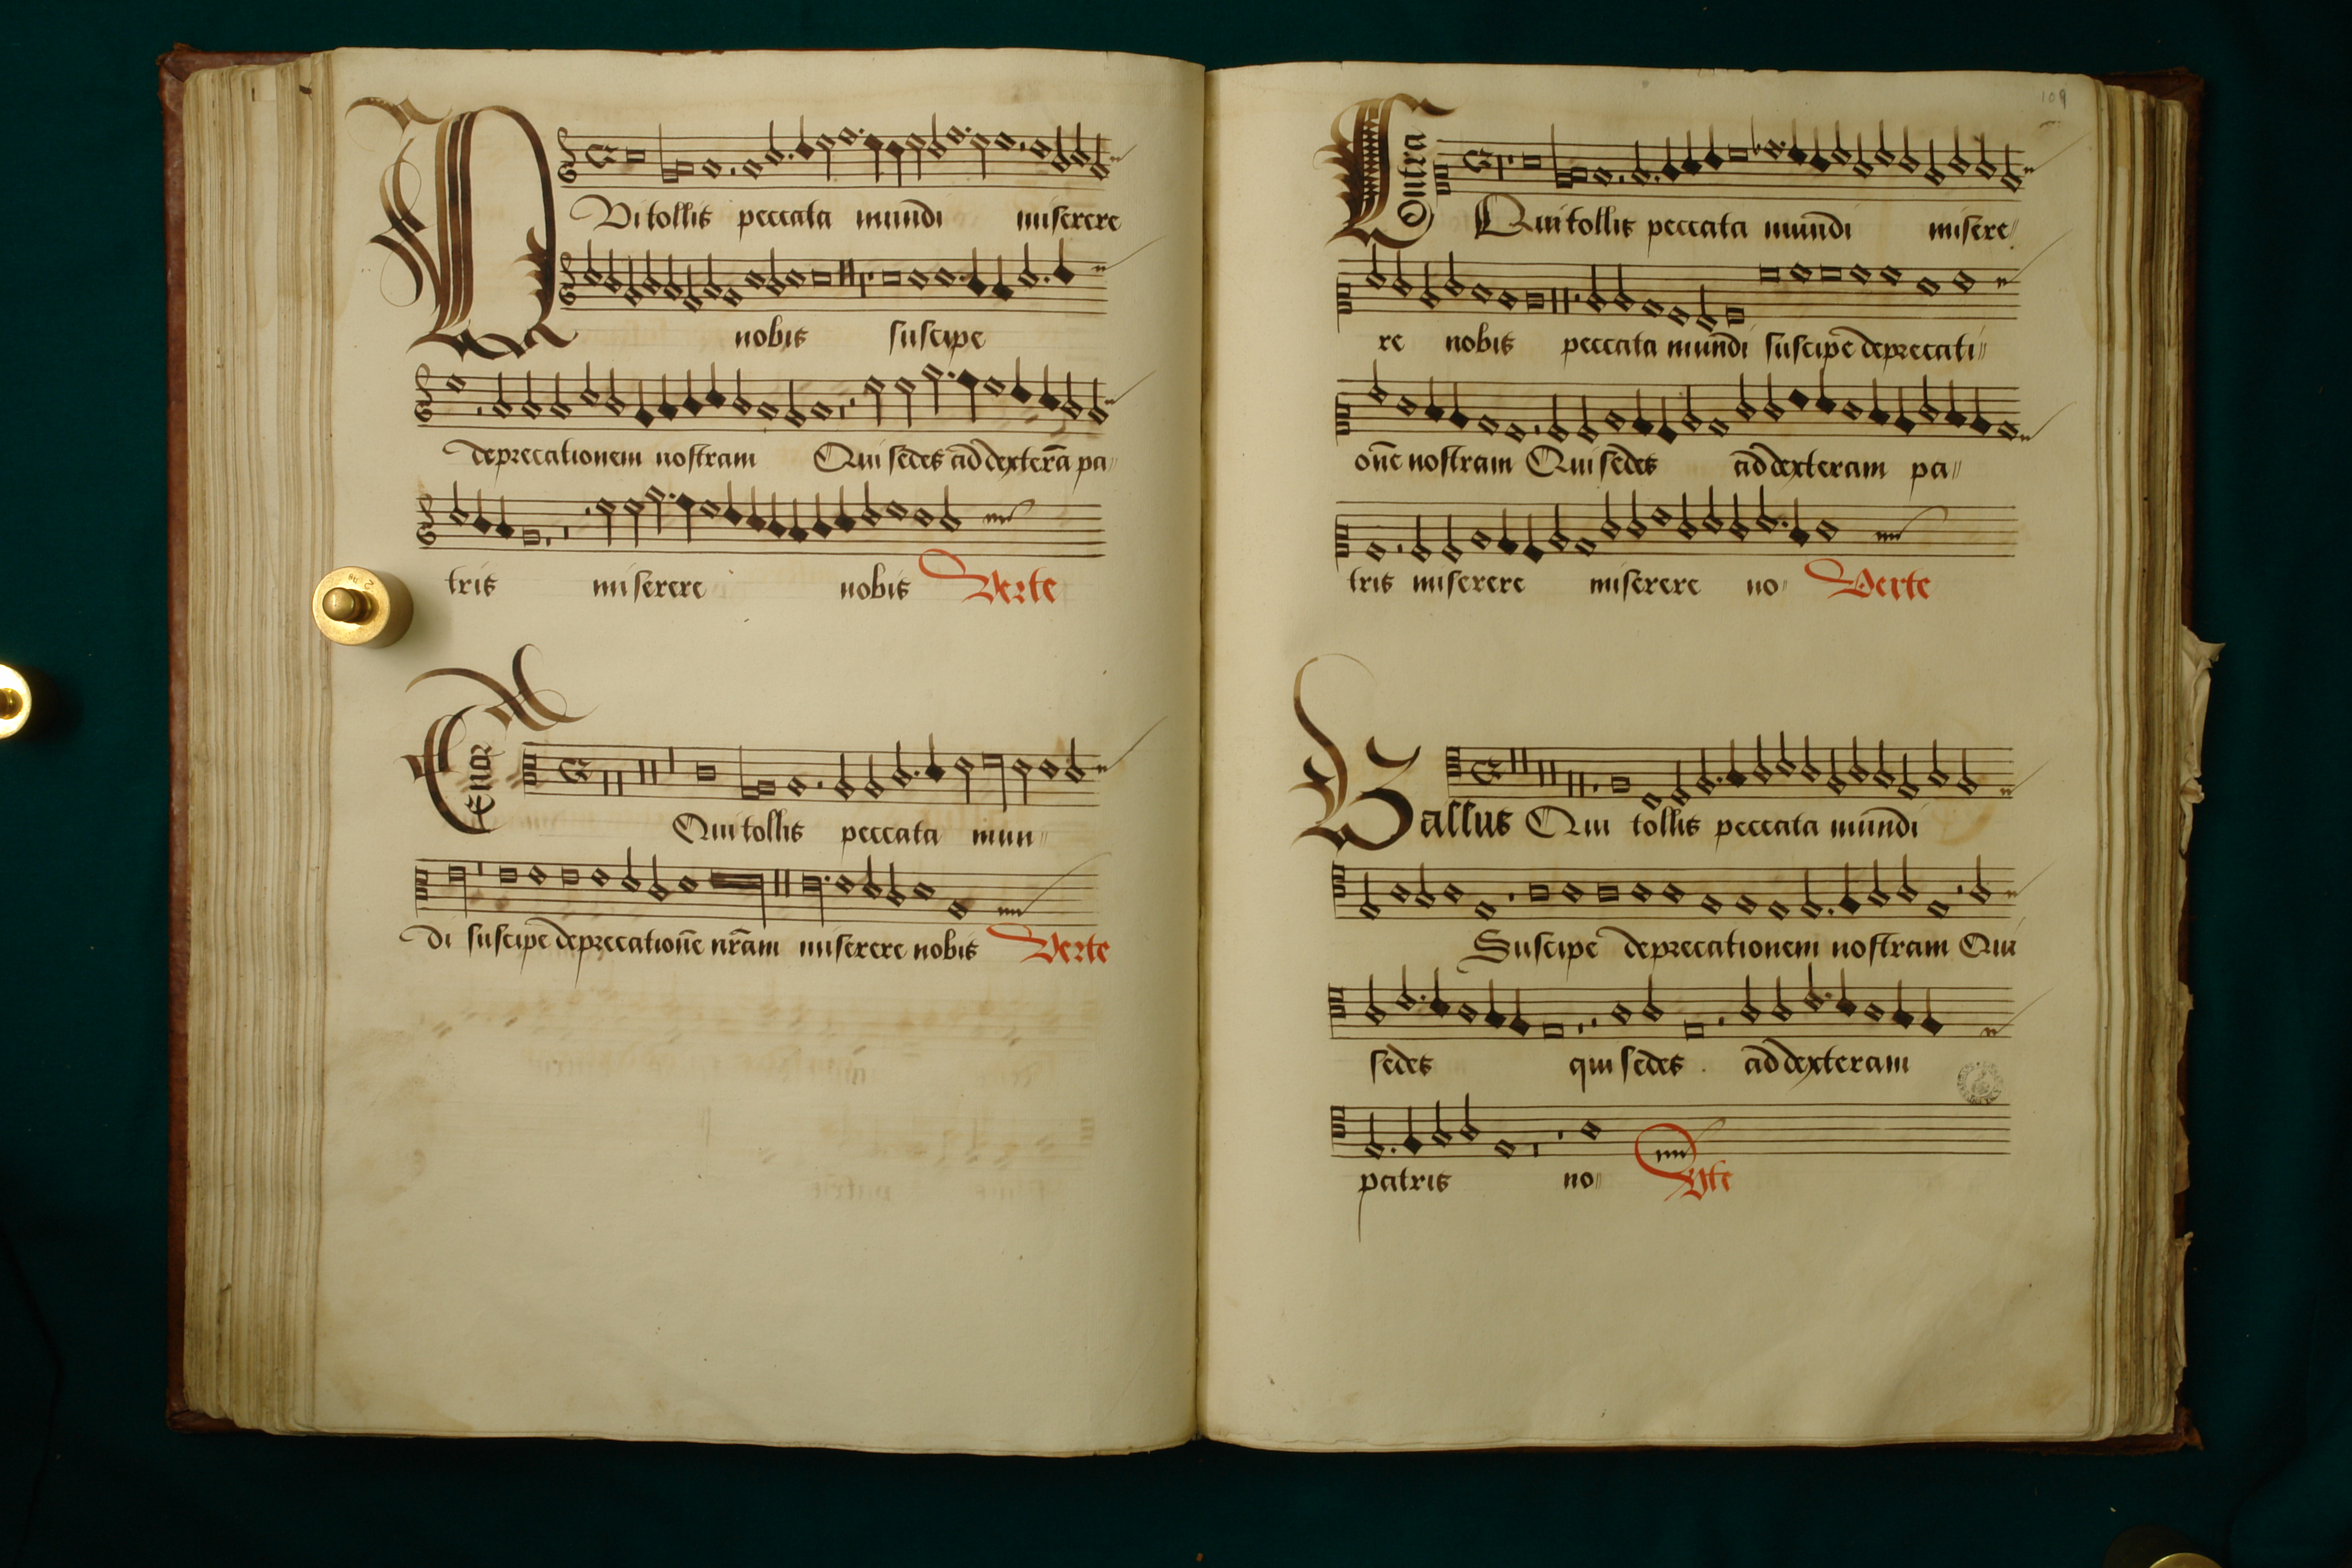 QVi tollis peccata mundi miserere
nobis suscipe
deprecationem nostram Qui sedes ad dexterā pa
tris miserere nobis Verte
Tenor
Qui tollis peccata mun
di suscipe deprecationē nr̄am miserere nobis Verte
109
Contra
Qui tollis peccata mundi misere
re nobis peccata mundi suscipe deprecati
onē nostram Qui sedes ad dexteram pa
tris miserere miserere no Verte
Bassus Qui tollis peccata mundi
Suscipe deprecationem nostram Qui
sedes qui sedes ad dexteram
patris no Vte